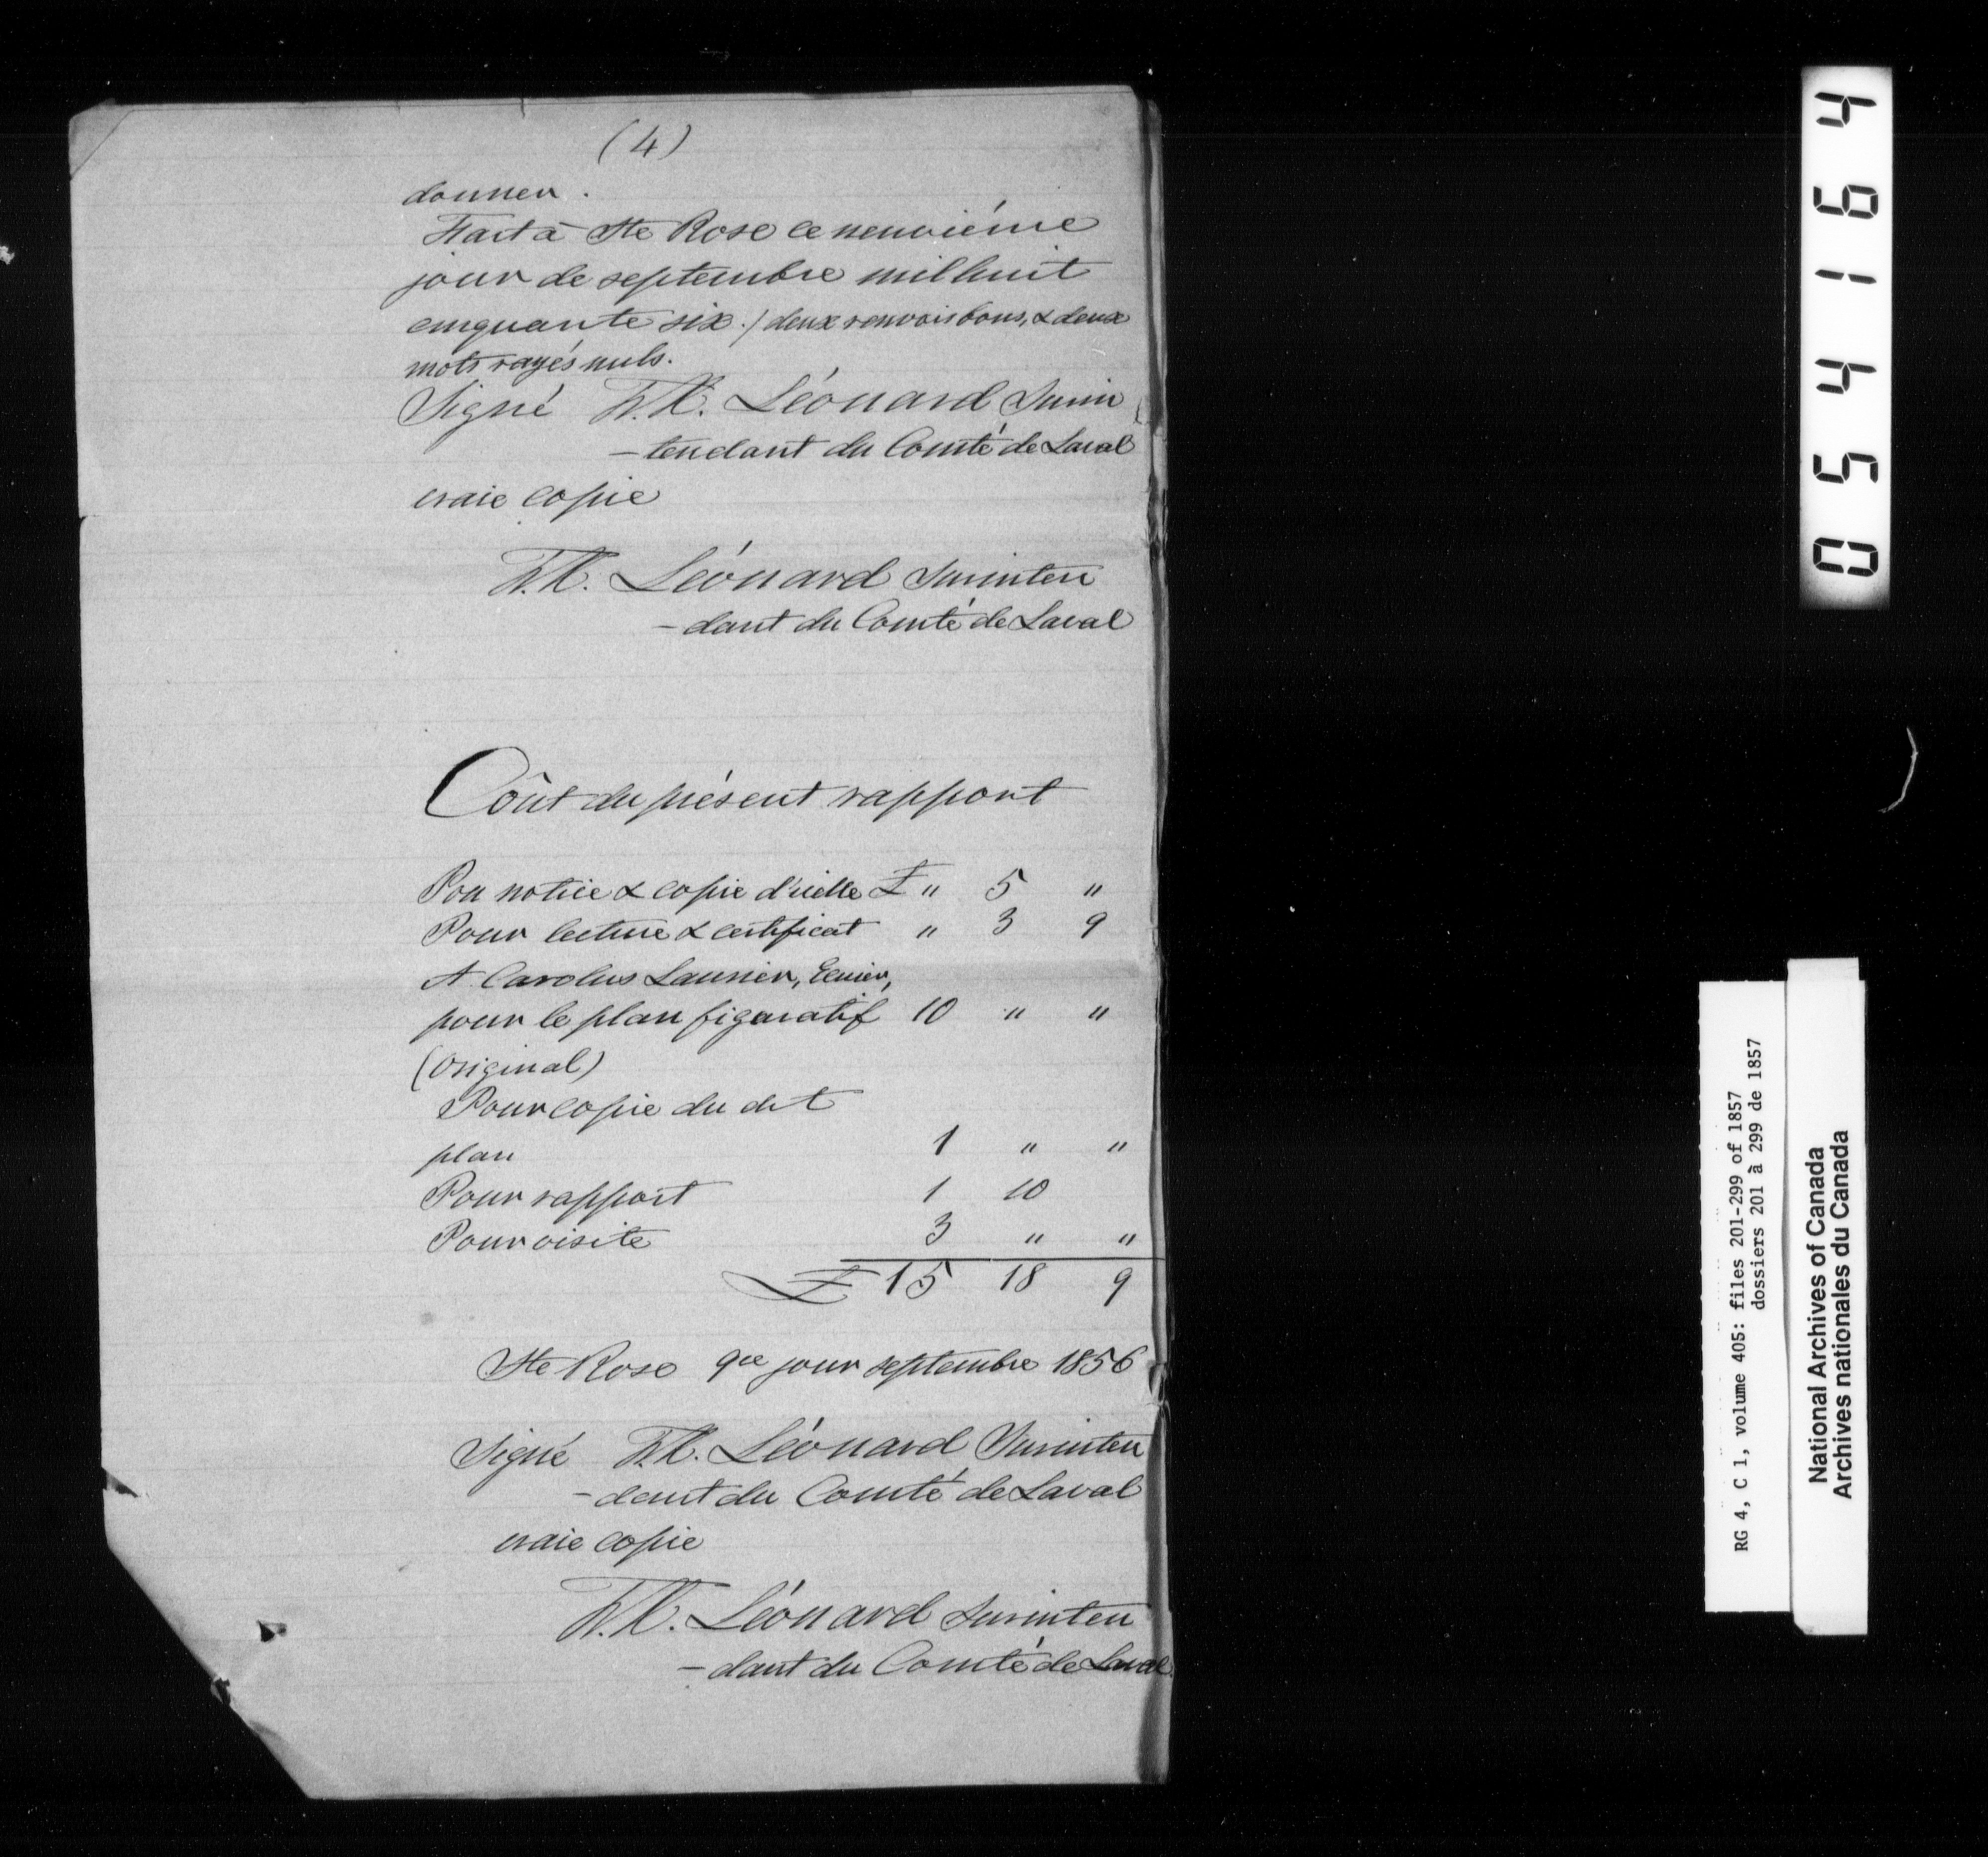 (4)
donner.
Fait à Ste Rose ce neuvième
jour de septembre mil huit
cinquante six./ deux renvois bons, & deux
mots rayés nuls.
Signé F.X. Léonard Surin
-tendant du Comté de Laval
vraie copie
F.X. Léonard Surinten
-dant du Comté de Laval
Coût du présent rapport
Pou notice & copie d'icelle £ " 5 "
Pour lecture & certificat " 3 9
A Carolus Laurier, Ecuier,
pour le plan figuratif 10 " "
(original)
Pour copie du dit
plan 1 " "
Pour rapport 1 10
Pour visite 3 " "
£ 15 18 9
Ste Rose 9me jour septembre 1856
Signé F.X. Léonard Surinten
-dant du Comté de Laval
vraie copie
F.X. Léonard Surinten
-dant du Comté de Laval
054164
RG 4, C 1, volume 405: files 201-299 of 1857
dossiers 201 à 299 de 1857
National Archives of Canada
Archives nationales du Canada